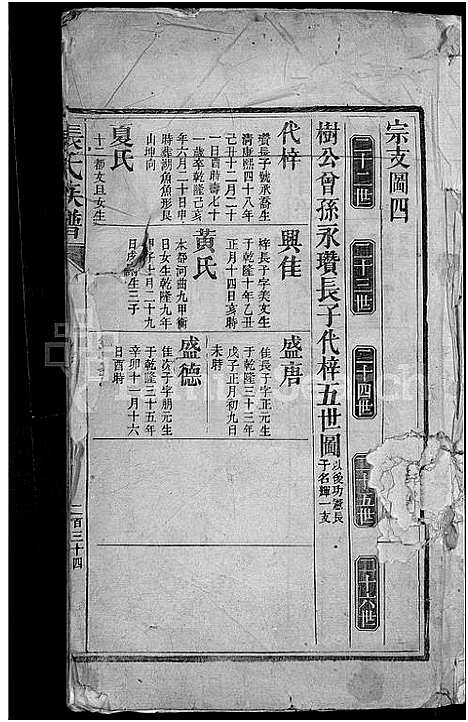 宗支圖四
二十二世
二十三世
二十四世
二十五世
二十六世
樹公曾孫永瓚長子代梓五世圖
以後功憲長
于名輝一支
代梓
瓚長子號承喬生
清康熙四十八年
己丑十二月二十
一日酉時壽七十
一歲卒乾隆己亥
年六月二十日申
時葬湖魚魚形艮
山坤向
夏氏
十二都文旦女生
興佳
梓長子字美文生
于乾隆十年乙丑
正月十四日亥時
黃氏
本都河曲九甲衝
日女生乾隆九年
甲子七月二十九
日戌時生三子
盛唐
佳長子字正元生
于乾隆三十三年
戊子正月初九日
未時
盛德
佳次子字朋元生
于乾隆三十五年
辛卯十一月十六
日酉時
張氏族譜
二百三十四